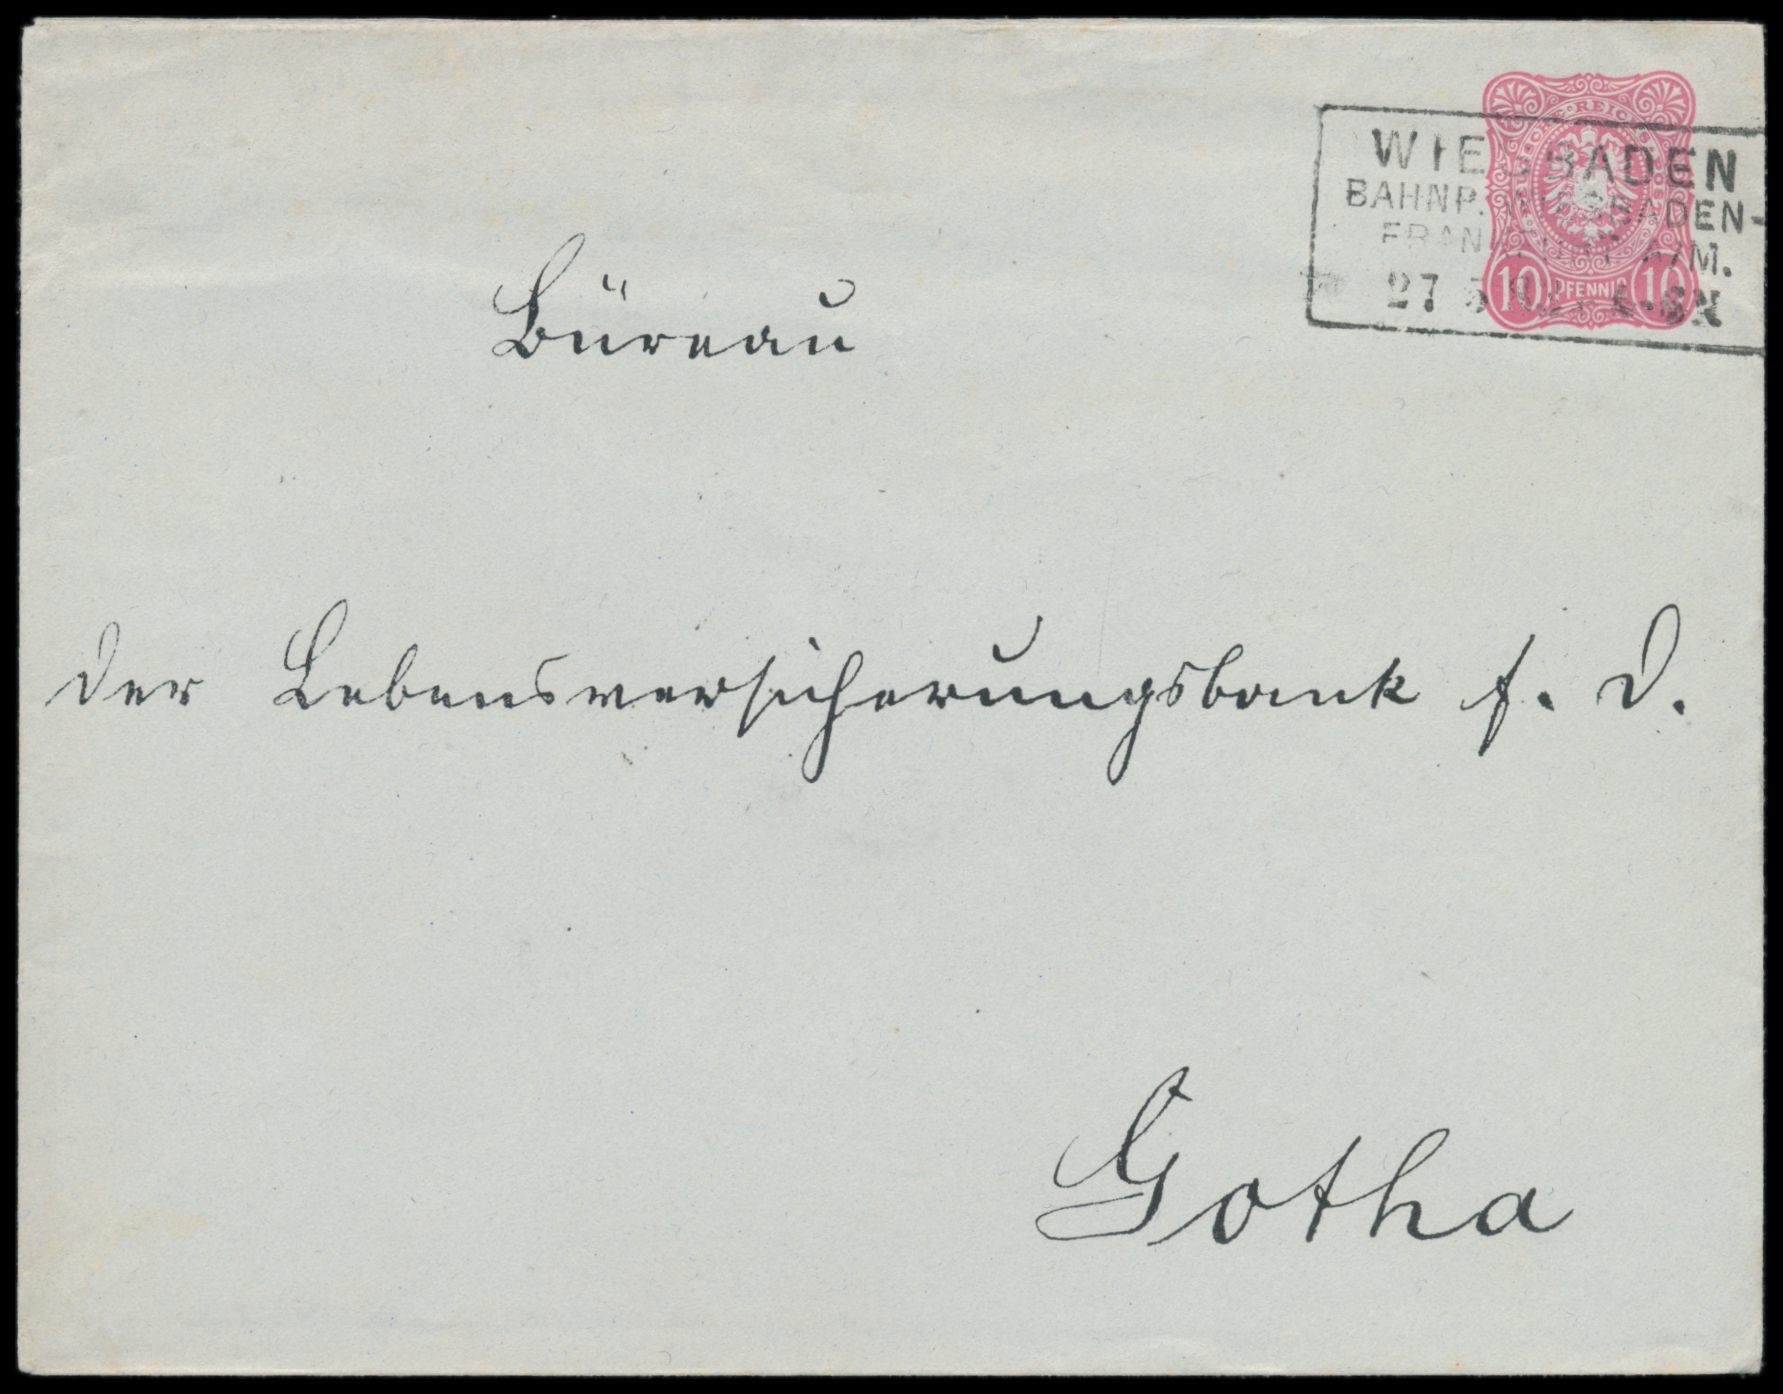 WIESBADEN
BAHNP. WIESBADEN-
FRANKFURT A/M.
27 5
REICHS
10 PFENNIG 10
Büreau
der Lebensversicherungsbank f. D.
Gotha